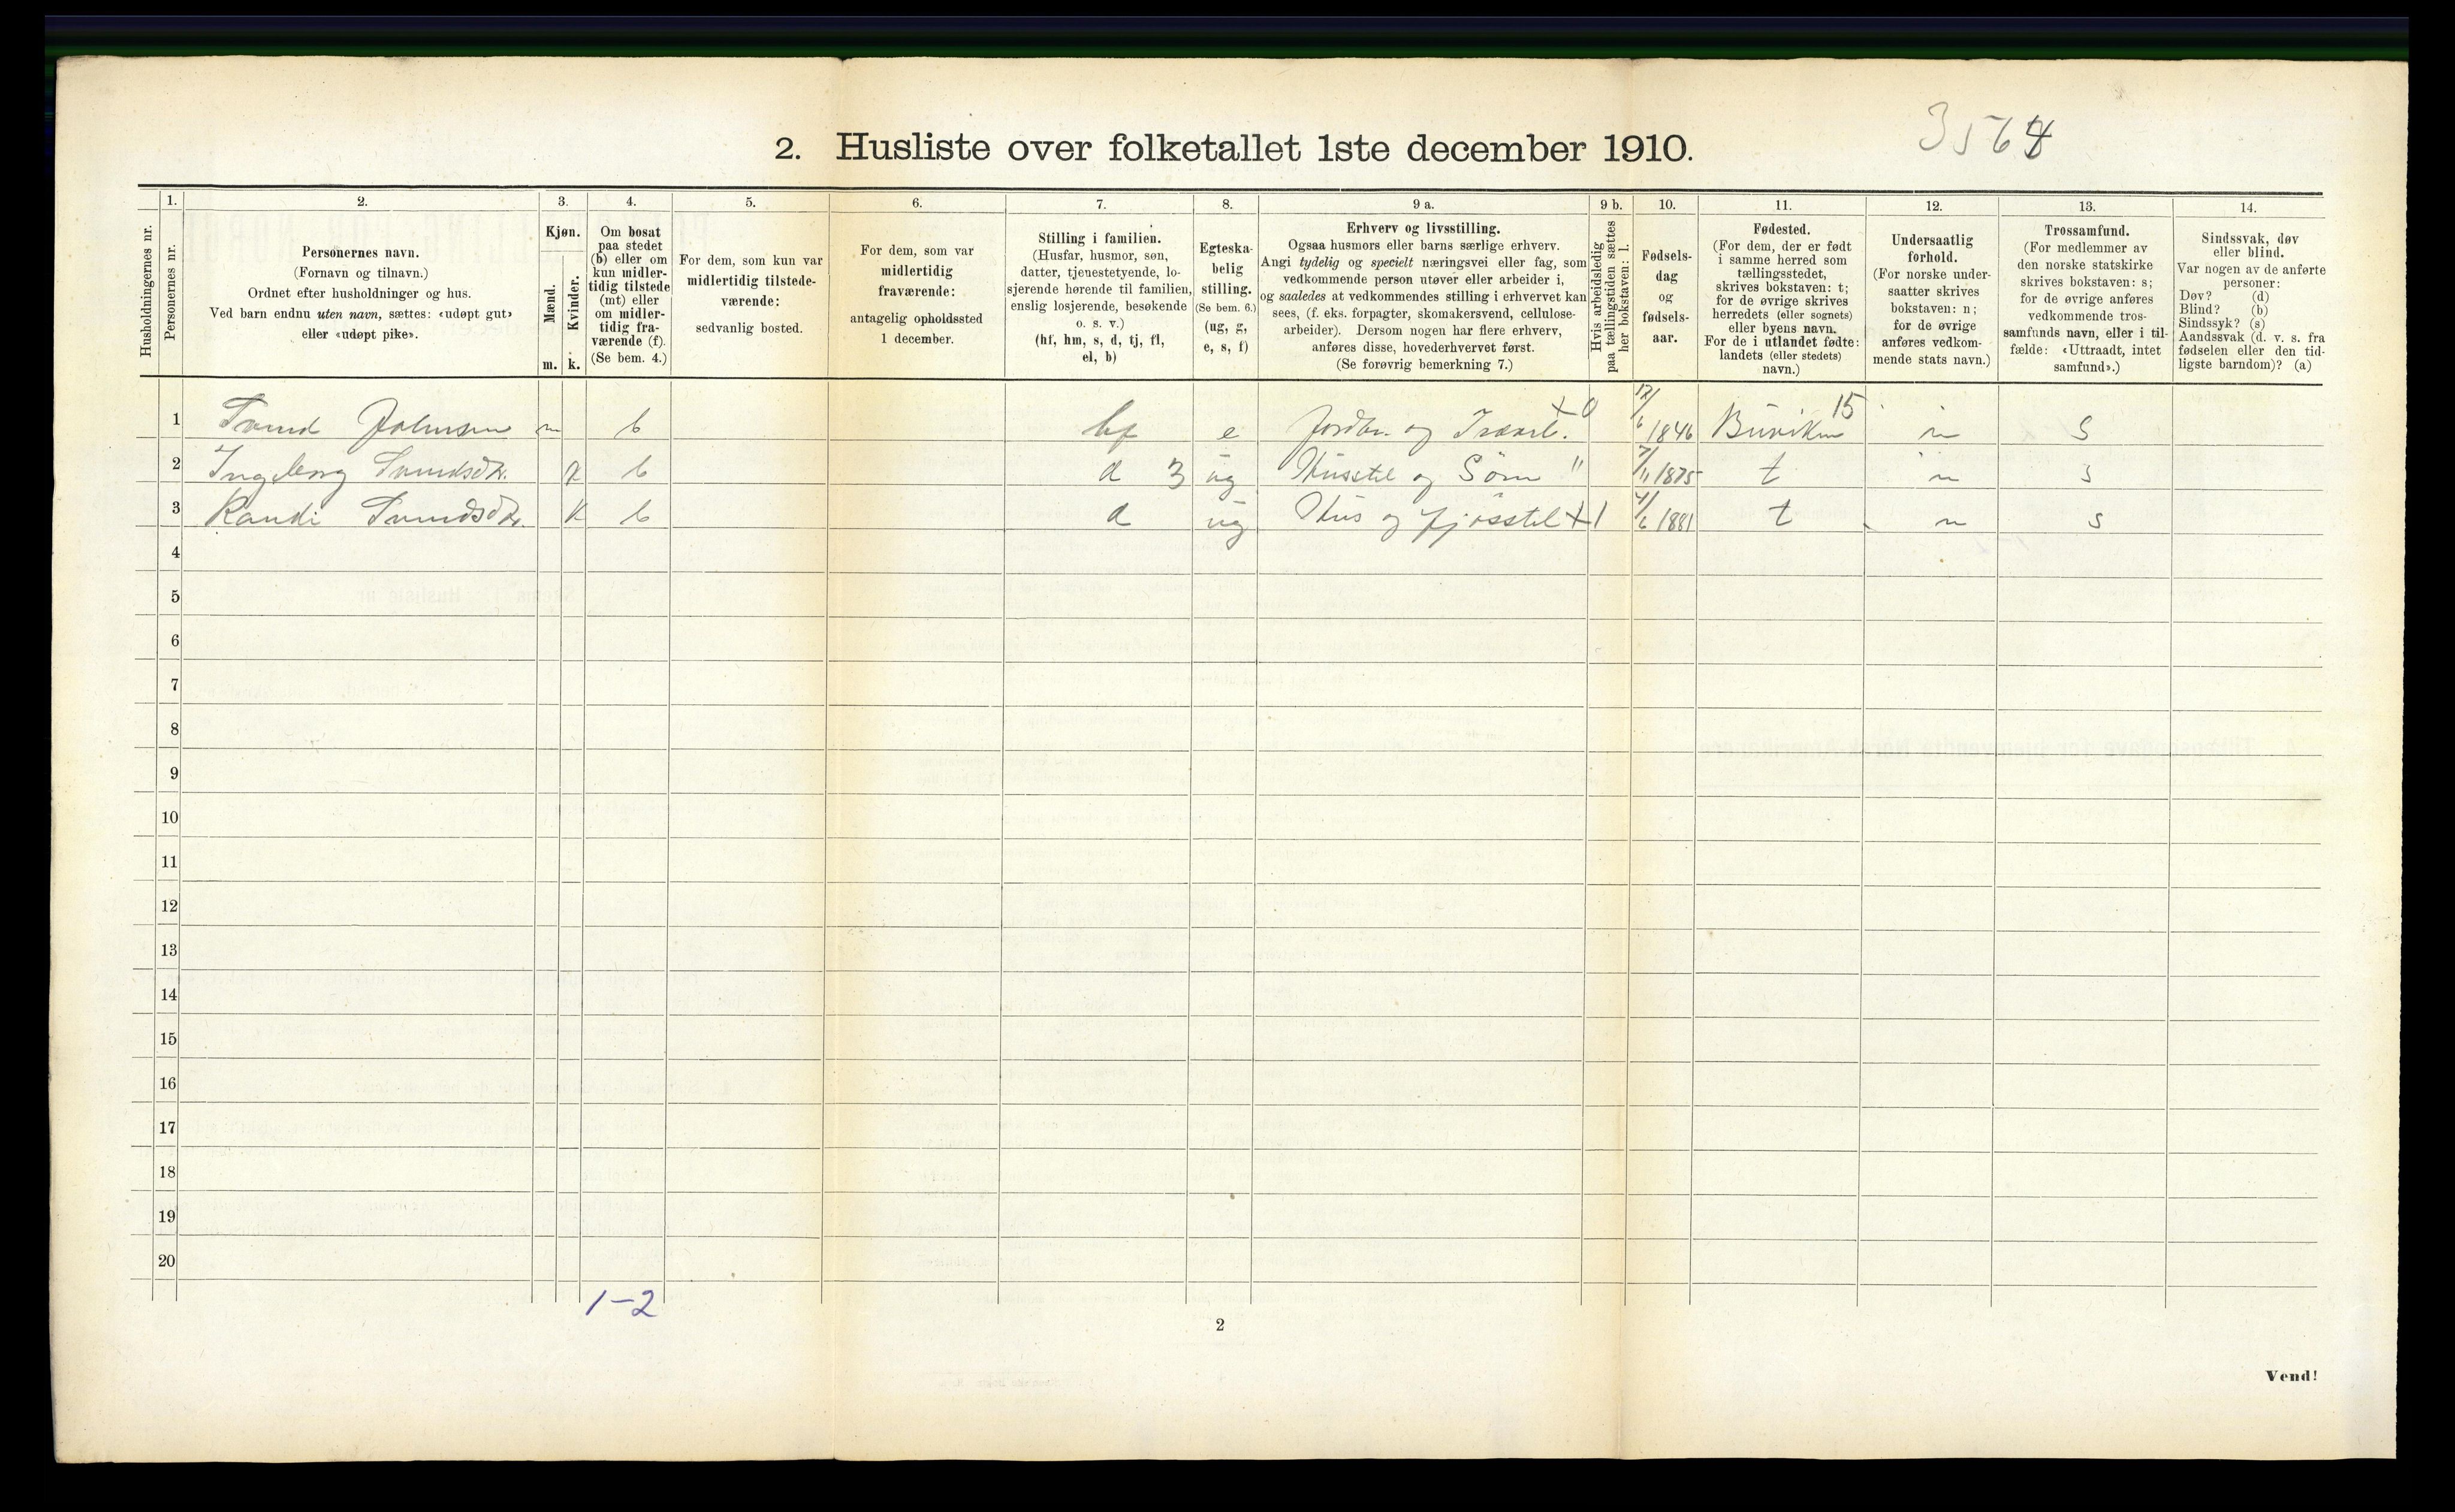 2. Husliste over folketallet 1ste december 1910.
Husholdningernes nr.
1.
Personernes nr.
2.
Personernes navn.
(Fornavn og tilnavn.)
Ordnet efter husholdninger og hus.
Ved barn endnu uten navn, sættes: «udøpt gut»
eller «udøpt pike».
3.
Kjøn.
Mænd.
m.
Kvinder.
k.
4.
Om bosat
paa stedet
(b) eller om
kun midler-
tidig tilstede
(mt) eller
om midler-
tidig fra-
værende (f).
(Se bem. 4.)
5.
For dem, som kun var
midlertidig tilstede-
værende:
sedvanlig bosted.
6.
For dem, som var
midlertidig
fraværende:
antagelig opholdssted
1 december.
7.
Stilling i familien.
(Husfar, husmor, søn,
datter, tjenestetyende, lo-
sjerende hørende til familien,
enslig losjerende, besøkende
o. s. v.)
(hf, hm, s, d, tj, fl,
el, b)
8.
Egteska-
belig
stilling.
(Se bem. 6.)
(ug, g,
e, s, f)
9 a.
Erhverv og livsstilling.
Ogsaa husmors eller barns særlige erhverv.
Angi tydelig og specielt næringsvei eller fag, som
vedkommende person utøver eller arbeider i,
og saaledes at vedkommendes stilling i erhvervet kan
sees, (f. eks. forpagter, skomakersvend, cellulose-
arbeider). Dersom nogen har flere erhverv,
anføres disse, hovederhvervet først.
(Se forøvrig bemerkning 7.)
9 b.
Hvis arbeidsledig
paa tællingstiden sættes
her bokstaven: l.
10.
Fødsels-
dag
og
fødsels-
aar.
11.
Fødested.
(For dem, der er født
i samme herred som
tællingsstedet,
skrives bokstaven: t;
for de øvrige skrives
herredets (eller sognets)
eller byens navn.
For de i utlandet fødte:
landets (eller stedets)
navn.)
12.
Undersaatlig
forhold.
(For norske under-
saatter skrives
bokstaven: n;
for de øvrige
anføres vedkom-
mende stats navn.)
13.
Trossamfund.
(For medlemmer av
den norske statskirke
skrives bokstaven: s;
for de øvrige anføres
vedkommende tros-
samfunds navn, eller i til-
fælde: «Uttraadt, intet
samfund».)
14.
Sindssvak, døv
eller blind.
Var nogen av de anførte
personer:
Døv? (d)
Blind? (b)
Sindssyk? (s)
Aandssvak (d. v. s. fra
fødselen eller den tid-
ligste barndom)? (a)
1 Johnsen m b hf e Jordbr. og x 0 1846 15 n s
2 Ingeborg k b d 3 ug Husstel og Søm " 1875 t n s
3 Randi k b d ug Hus og fjøsstel x 1 1881 t n s
4
5
6
7
8
9
10
11
12
13
14
15
16
17
18
19
20
1-2
2
Vend!